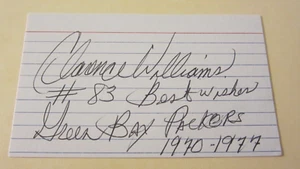 Clarence Williams
# 83 Best wishes
Green Bay Packers
1970-1977